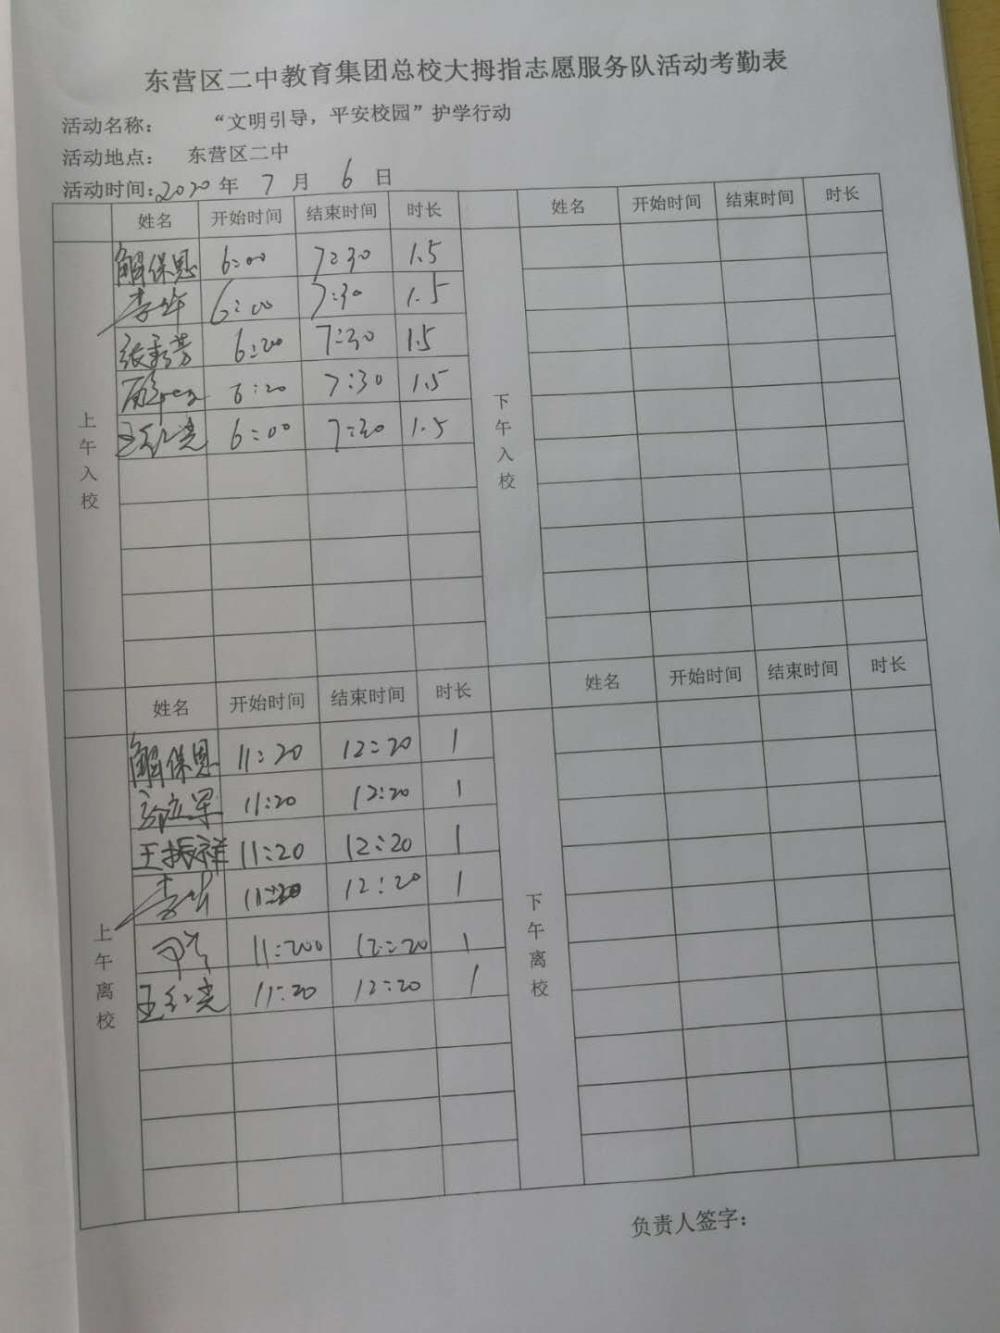 东营区二中教育集团总校大拇指志愿服务队活动考勤表
活动名称： “文明引导，平安校园”护学行动
活动地点： 东营区二中
活动时间:2020年 7 月 6 日
姓名 开始时间 结束时间 时长 姓名 开始时间 结束时间 时长
上午入校
解保恩 6:00 7:30 1.5
李华 6:00 7:30 1.5
张秀芳 6:00 7:30 1.5
7:30 1.5
王红光 6:00 7:30 1.5
下午入校
姓名 开始时间 结束时间 时长 姓名 开始时间 结束时间 时长
上午离校
解保恩 11:20 12:20 1
11:20 12:20 1
王振祥 11:20 12:20 1
李华 11:20 12:20 1
11:200 12:20 1
王红光 11:20 12:20 1
下午离校
负责人签字：